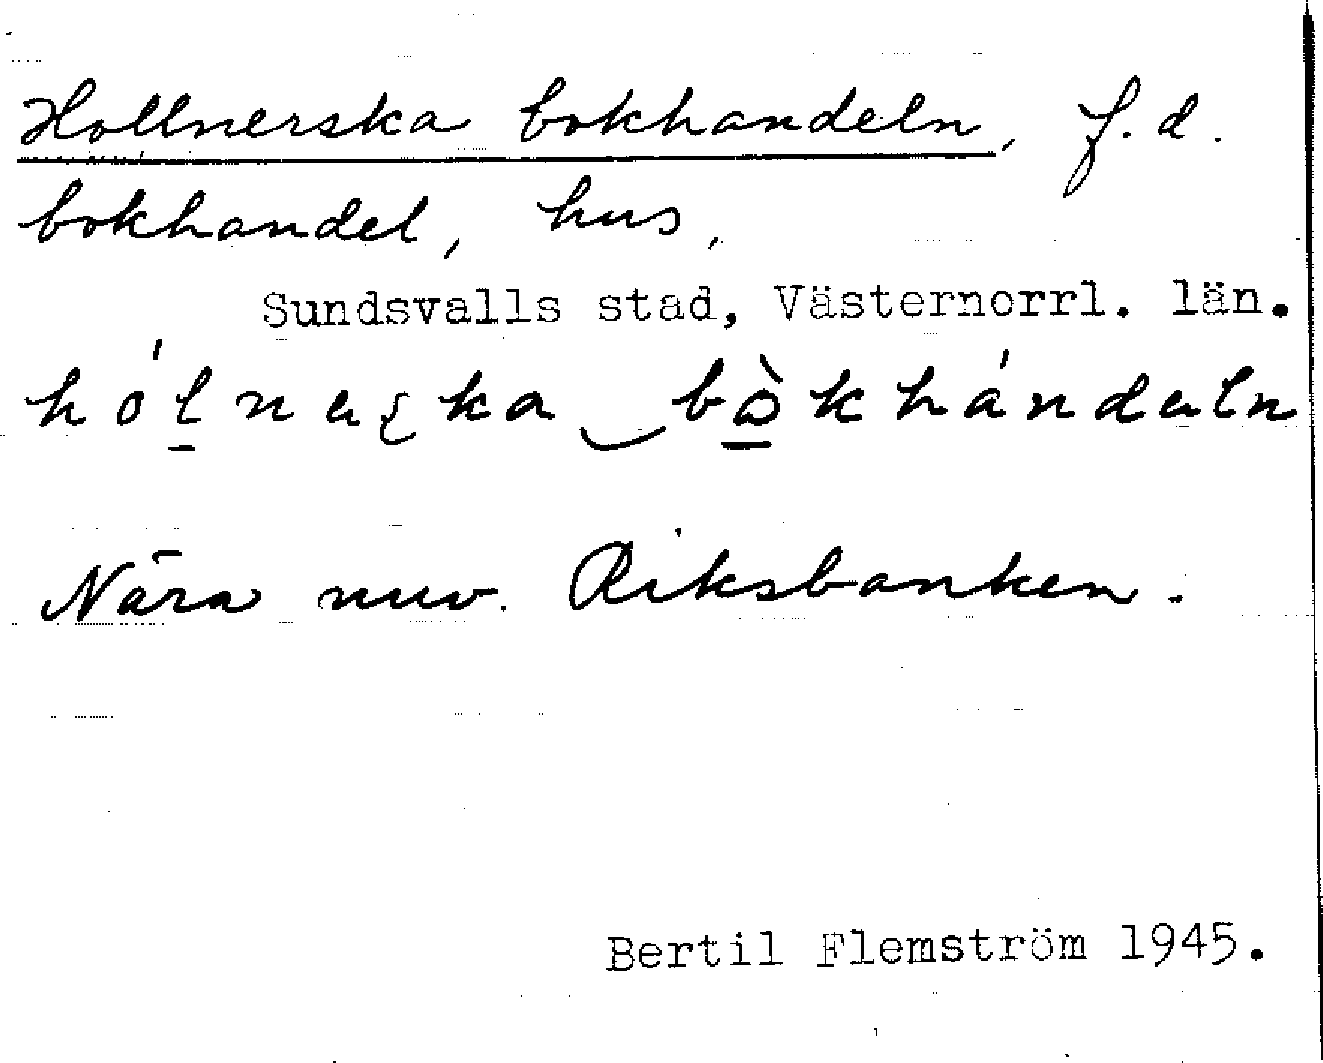 Hollnerska bokhandeln, f.d.
bokhandel, hus,
Sundsvalls stad, Västernorrl. län.
Nära nuv. Riksbanken.
Bertil Flemström 1945.